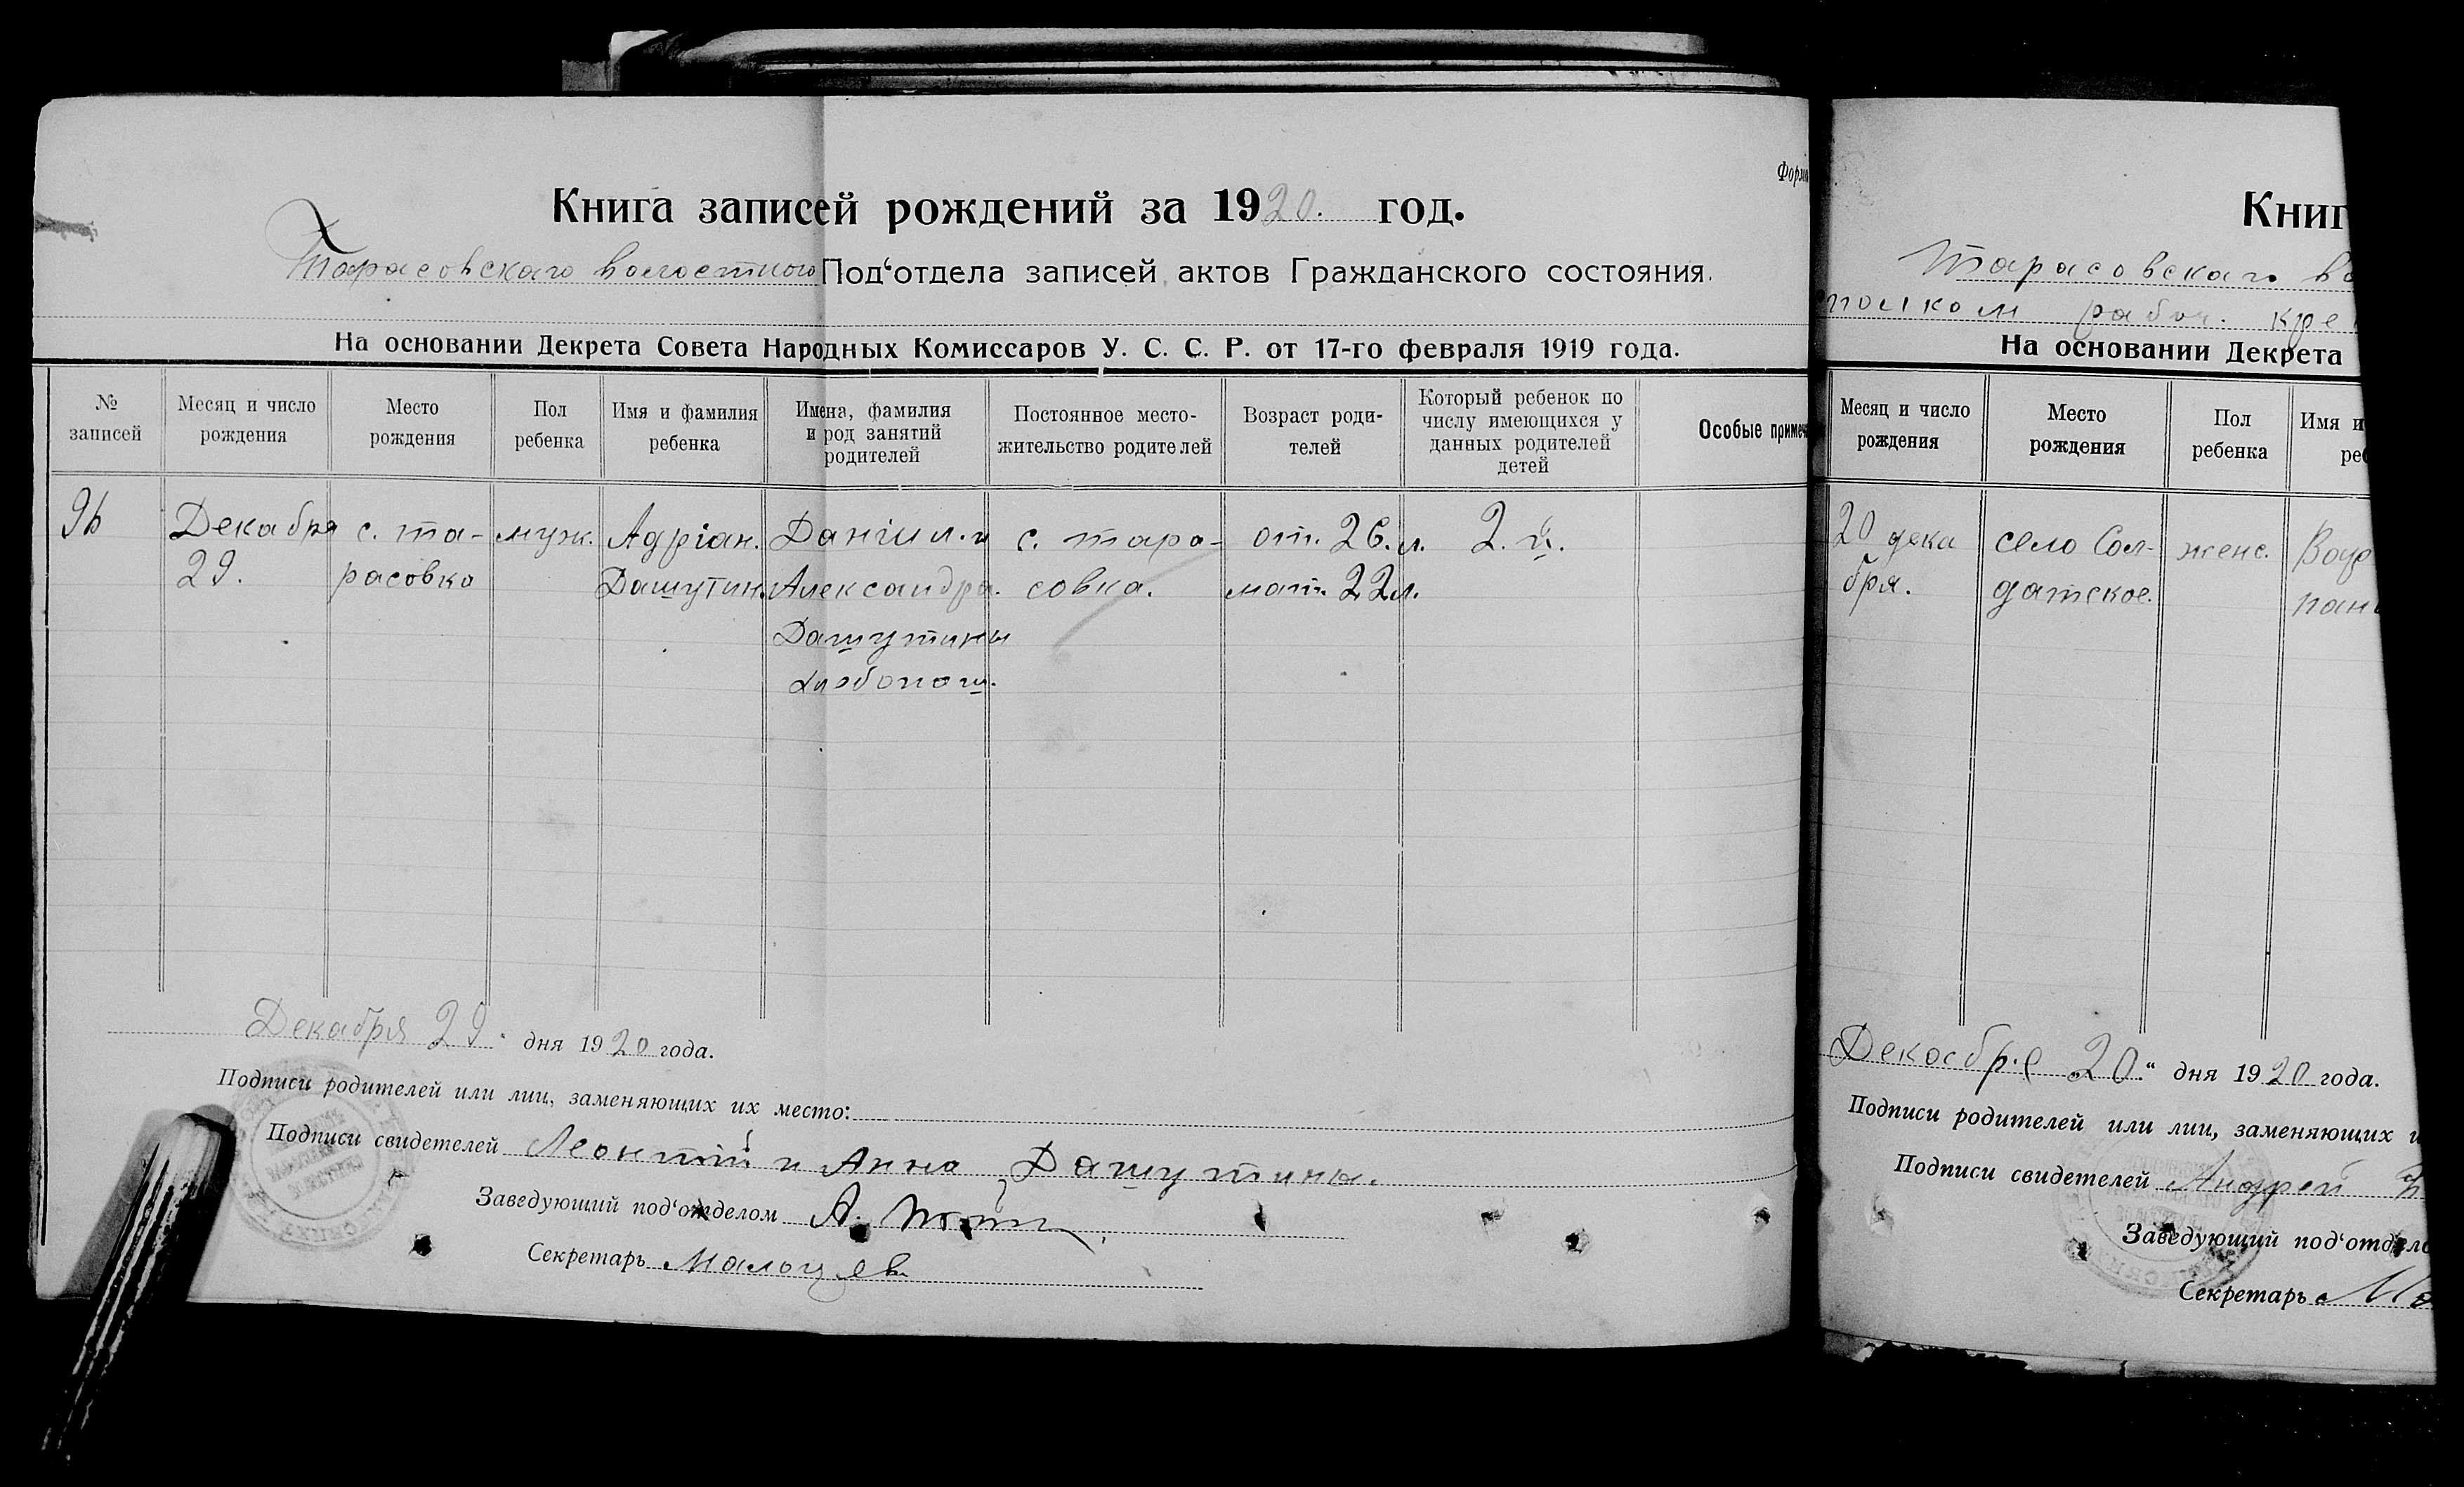 Форм
Книга записей рождений за 1920. год.
Тарасовскаго волостного Под‘отдела записей актов Гражданского состояния.
На основании Декрета Совета Народных Комиссаров У. С. С. Р. от 17-го февраля 1919 года.
№ записей
Месяц и число рождения
Место рождения
Пол ребенка
Имя и фамилия ребенка
Имена, фамилия и род занятий родителей
Постоянное место-жительство родителей
Возраст роди-телей
Который ребенок по числу имеющихся у данных родителей детей
Особые примеч
Декабря с. та- муж. Адріан. Даніил. и с. тара- от. 26. л. 2. й.
29. расовка Дашутин. Александра. совка. мат. 22 л.
Дашутины
хлебопаш.
Декабря 29. дня 1920 года.
Подписи родителей или лиц, заменяющих их место:
Подписи свидетелей Леонтій и Анна Дашутины.
Заведующий под‘отделом А.
Секретарь
Книг
Тарасовскаго во
полком рабоч. кре
На основании Декрета
Месяц и число рождения
Место рождения
Пол ребенка
Имя и
реб
20 дека село Сол- женс.
бря. датское.
Декабре 20.“ дня 1920 года.
Подписи родителей или лиц, заменяющих и
Подписи свидетелей Андрей
Заведующий под‘отдело
Секретарь